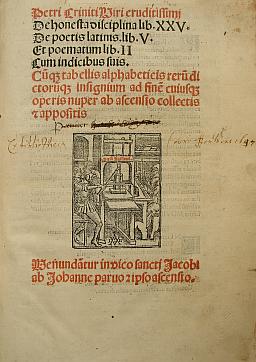 Petri Criniti Viri eruditissimi
De honesta disciplina lib. XXV.
De poetis latinis. lib. V.
Et poematum lib. II
Cum indicibus suis.
Cūq; tabellis alphabeticis rerū di
ctorūq; insignium ad finē cuiusq;
operis nuper ab ascensio collectis
& appositis
Venundātur in vico sancti Jacobi
ab Johanne paruo & ipso ascensio.